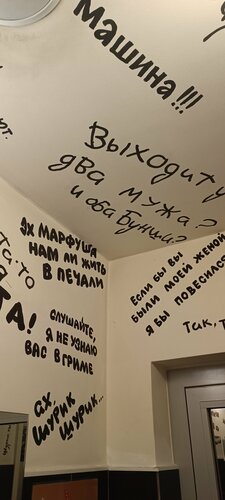 Машина!!!
Выходит у
два мужа?
и оба Бунши?
Эх Марфуша
нам ли жить
в печали
Если бы вы
были моей женой
я бы повесился
Слушайте,
я не узнаю
вас в гриме
Так, т
та-то
та!
ах,
Шурик
Шурик...
рт.